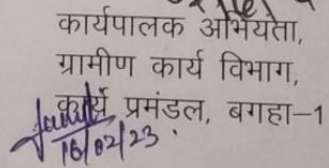 कार्यपालक अभियंता,
ग्रामीण कार्य विभाग,
कार्य प्रमंडल, बगहा-1
16/02/23